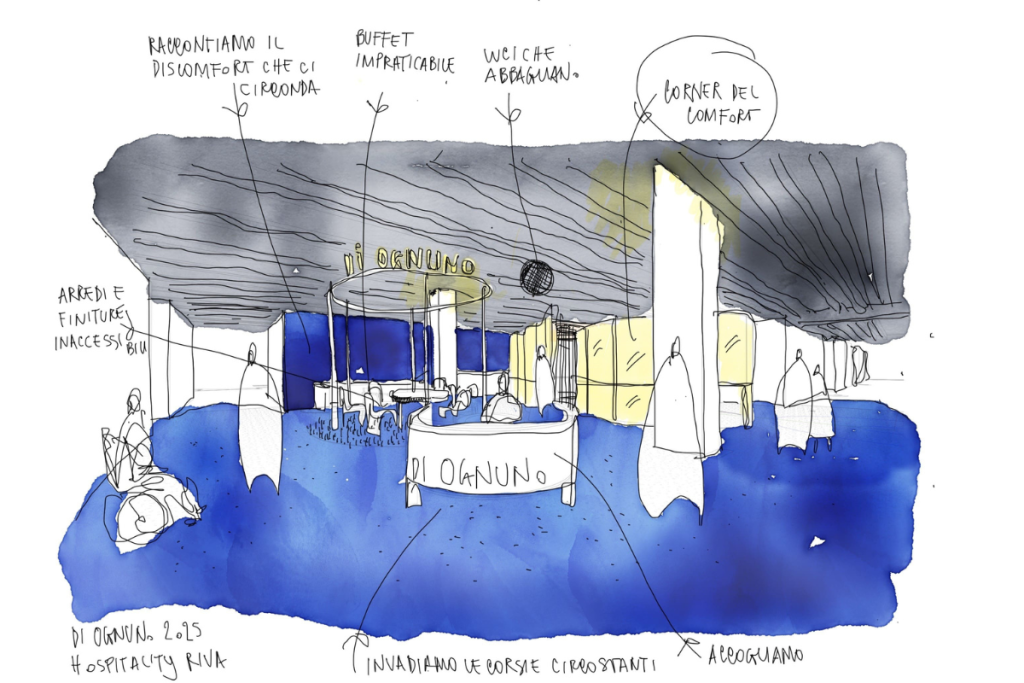 RACCONTIAMO IL
DISCOMFORT CHE CI
CIRCONDA
BUFFET
IMPRATICABILE
WC CHE
ABBAGLIANO
CORNER DEL
COMFORT
ARREDI E
FINITURE
INACCESSI
BILI
DI OGNUNO
DI OGNUNO
DI OGNUNO 2025
HOSPITALITY RIVA
INVADIAMO LE CORSIE CIRCOSTANTI
ACCOGLIAMO